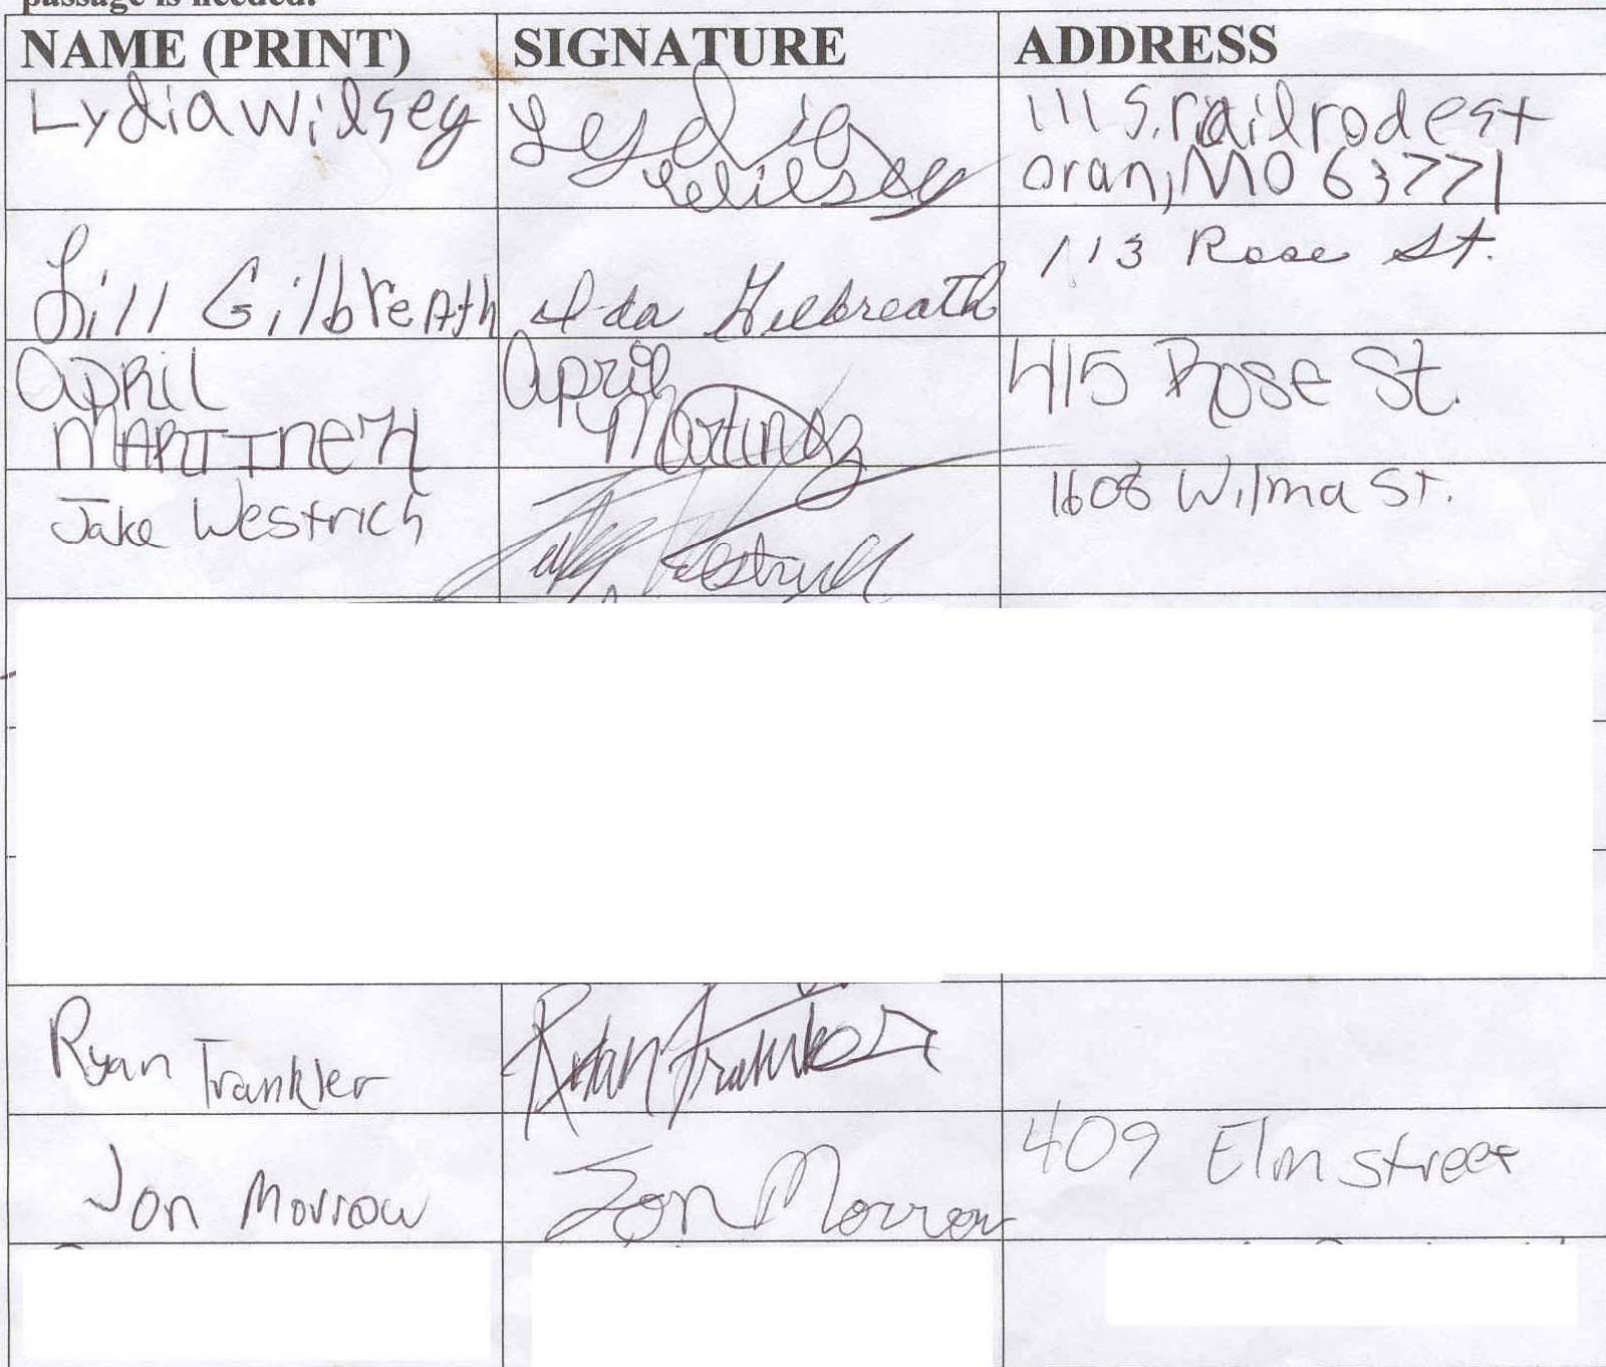 passage is needed.
NAME (PRINT) SIGNATURE ADDRESS
Lydia Wilsey Lydia Wilsey 111 S. railrodest
oran, MO 63771
Lill Gilbreath Ida Gilbreath 113 Rose St.
April April 415 Rose St.
MARTINEZ Martinez
Jake Westrich Jake Westrich 1608 Wilma St.
Ryan Trankler Ryan Trankler
Jon Morrow Jon Morrow 409 Elm street